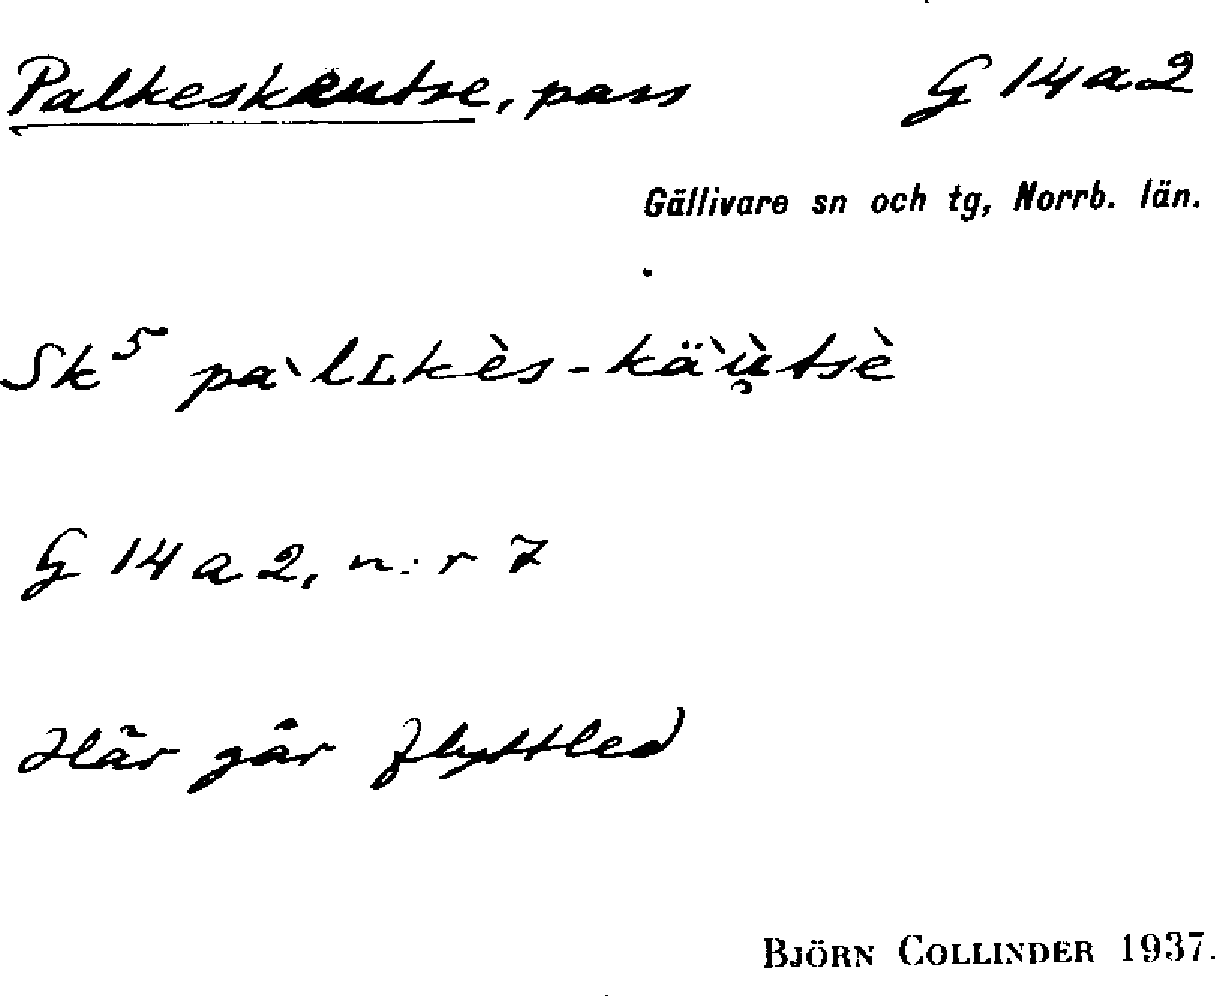 Palkeskeutse, pass G 14 a 2
Gällivare sn och tg, Norrb. län.
Sk⁵ pàlʟkès-kä̀ụ̀tsè
G 14 a 2, n:r 7
Här går flyttled
BJÖRN COLLINDER 1937.